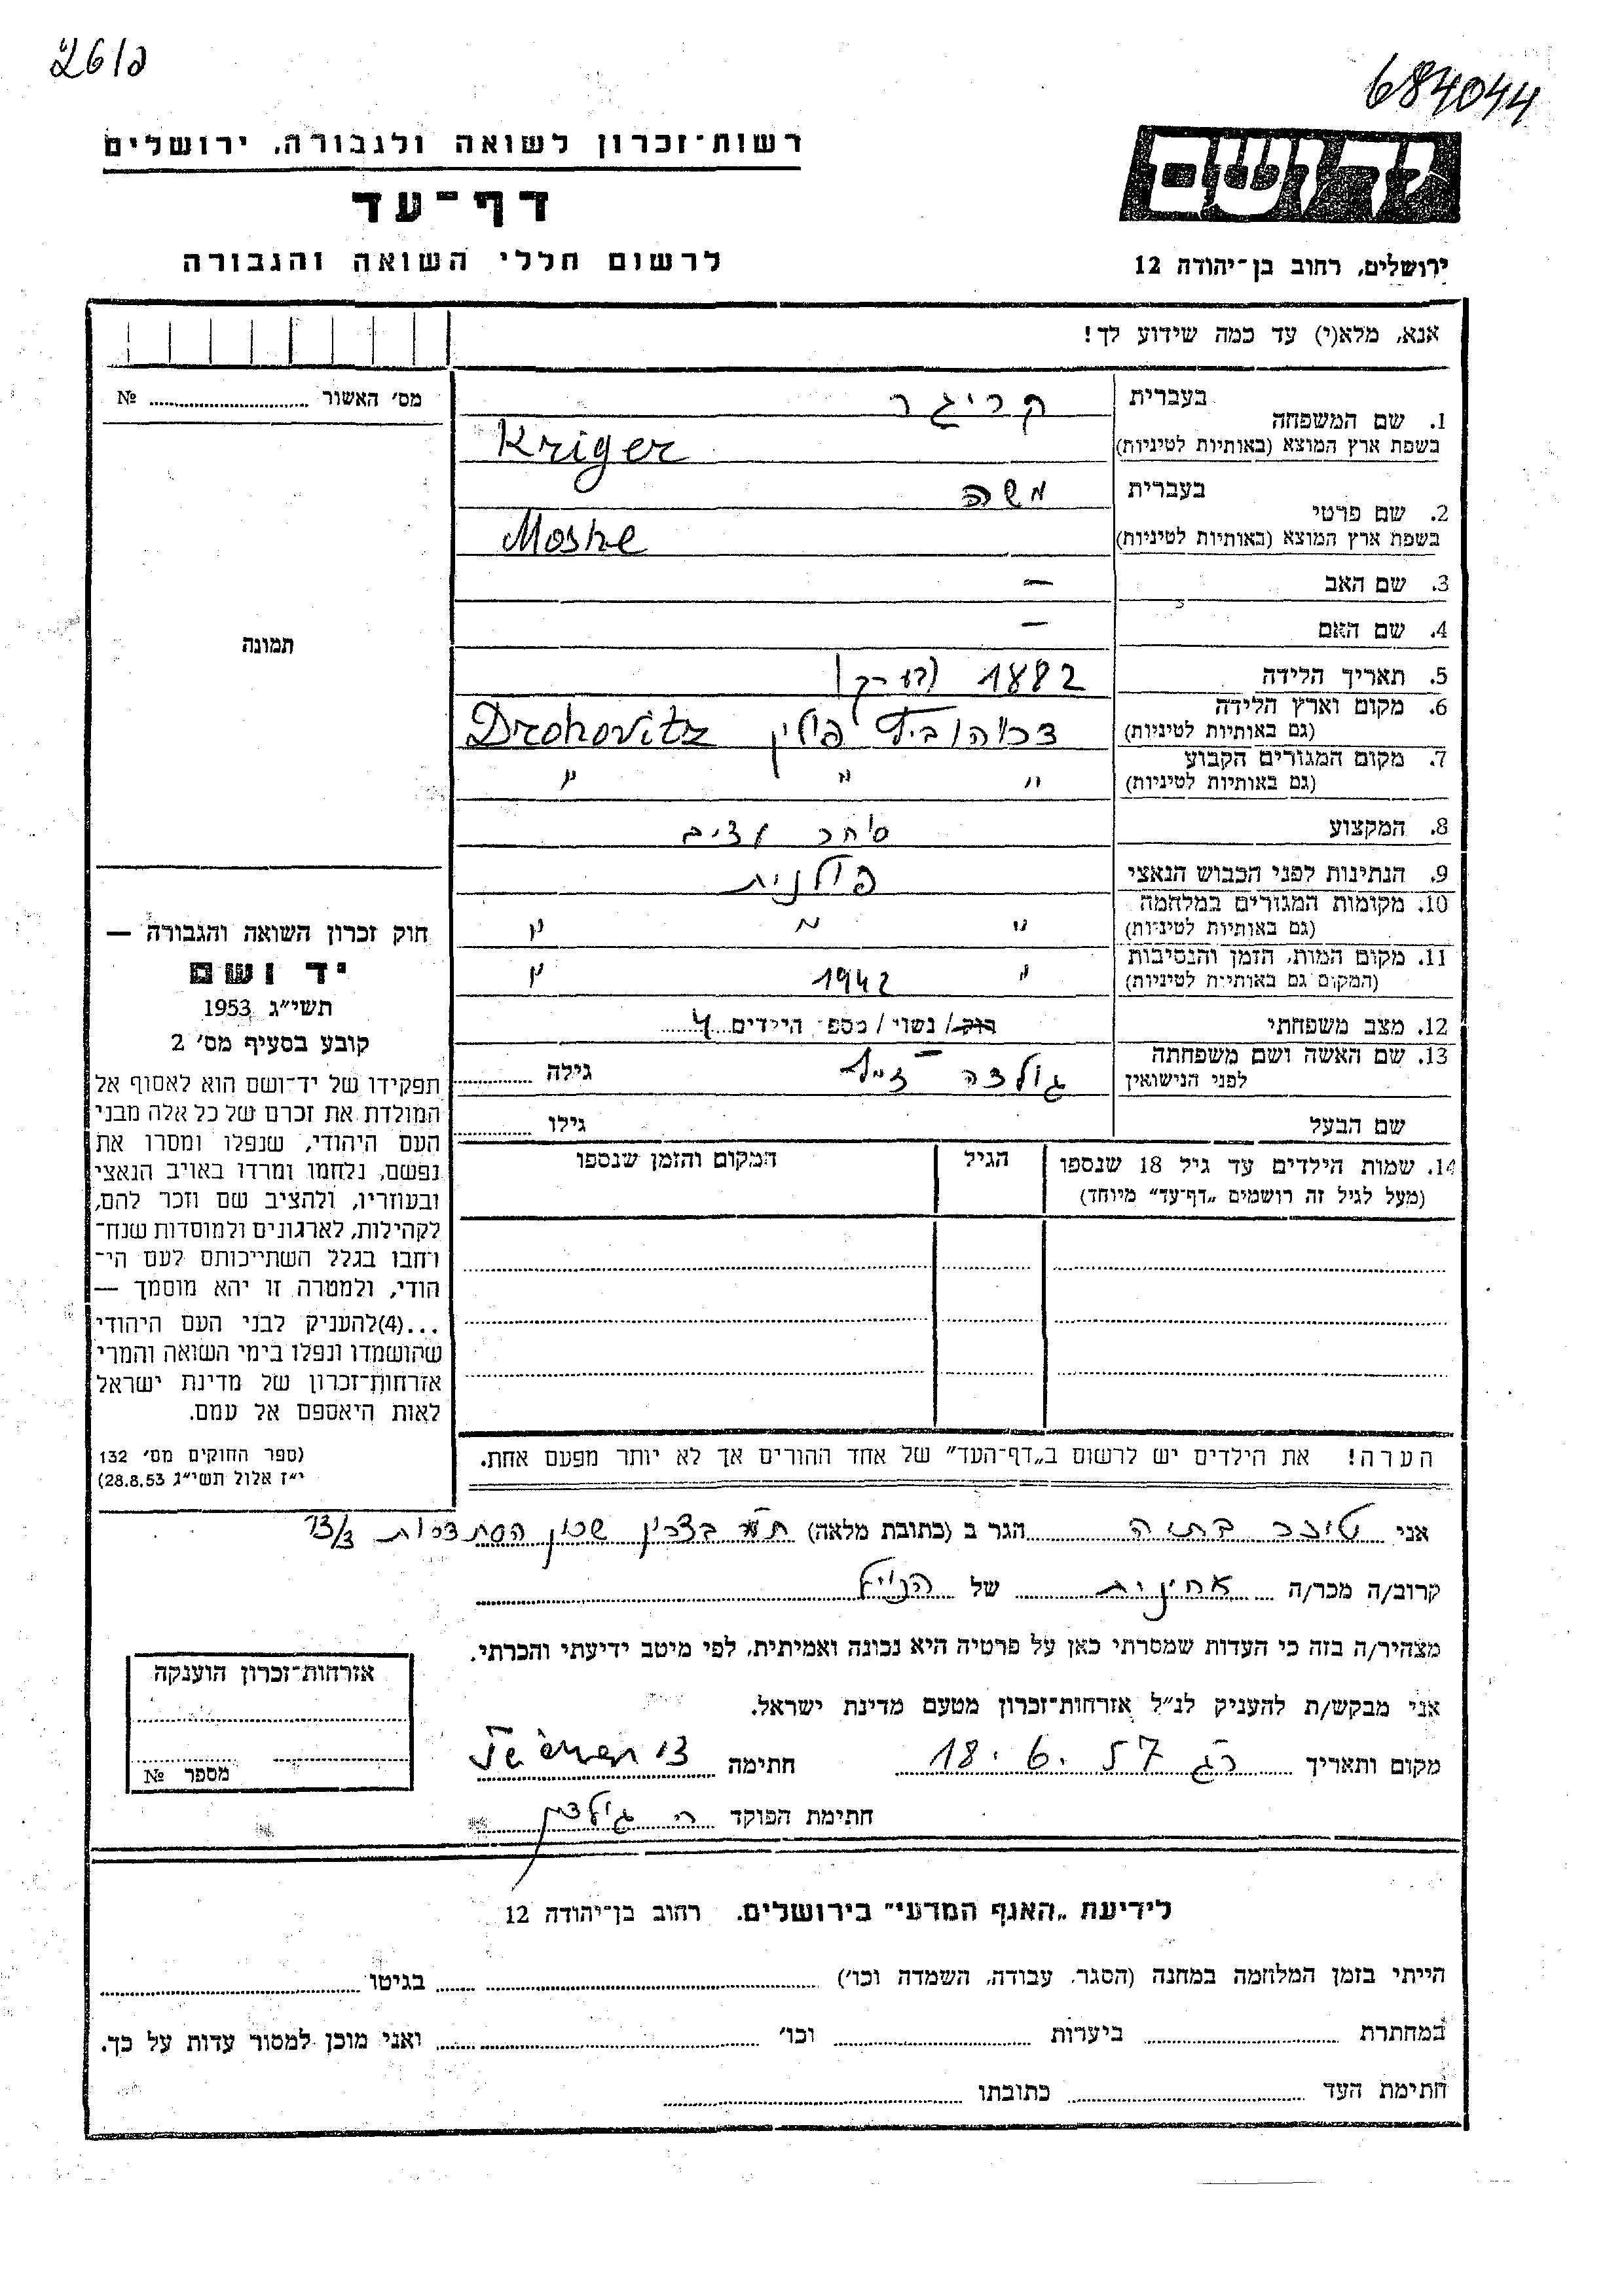 684044
רשות־זכרון לשואה ולגבורה, ירושלים
דף־עד
לרשום חללי השואה והגבורה
ידושם
ירושלים, רחוב בן־יהודה 12
אנא, מלא(י) עד כמה שידוע לך!
מס׳ האשור № 
תמונה
1. שם המשפחה
בעברית קריגר
בשפת ארץ המוצא (באותיות לטיניות) Kriger
2. שם פרטי
בעברית משה
בשפת ארץ המוצא (באותיות לטיניות) Moshe
3. שם האב —
4. שם האם —
5. תאריך הלידה 1882
6. מקום וארץ הלידה
(גם באותיות לטיניות) פולין Drohovitz
7. מקום המגורים הקבוע
(גם באותיות לטיניות) " " "
8. המקצוע סוחר עצים
9. הנתינות לפני הכבוש הנאצי פולנית
10. מקומות המגורים במלחמה
(גם באותיות לטיניות) " " "
11. מקום המות, הזמן והנסיבות
(המקום גם באותיות לטיניות) " 1942 "
12. מצב משפחתי רוק/ נשוי/ מספר הילדים 4
13. שם האשה ושם משפחתה
לפני הנישואין גולדה גילה
שם הבעל גילו
14. שמות הילדים עד גיל 18 שנספו הגיל המקום והזמן שנספו
(מעל לגיל זה רושמים „דף־עד״ מיוחד)
הערה! את הילדים יש לרשום ב„דף־העד״ של אחד ההורים אך לא יותר מפעם אחת.
חוק זכרון השואה והגבורה —
יד ושם
תשי״ג 1953
קובע בסעיף מס׳ 2
תפקידו של יד־ושם הוא לאסוף אל
המולדת את זכרם של כל אלה מבני
העם היהודי, שנפלו ומסרו את
נפשם, נלחמו ומרדו באויב הנאצי
ובעוזריו, ולהציב שם וזכר להם,
לקהילות, לארגונים ולמוסדות שנח־
רחבו בגלל השתייכותם לעם הי־
הודי, ולמטרה זו יהא מוסמך —
...(4)להעניק לבני העם היהודי
שהושמדו ונפלו בימי השואה והמרי
אזרחות־זכרון של מדינת ישראל
לאות היאספם אל עמם.
(ספר החוקים מס׳ 132
י״ז אלול תשי״ג 28.8.53)
אני בתיה הגר ב (כתובת מלאה) שכון הסתדרות
קרוב/ה מכר/ה אחינית של הנ״ל
מצהיר/ה בזה כי העדות שמסרתי כאן על פרטיה היא נכונה ואמיתית, לפי מיטב ידיעתי והכרתי.
אני מבקש/ת להעניק לנ״ל אזרחות־זכרון מטעם מדינת ישראל.
מקום ותאריך רג 18.6.57 חתימה
חתימת הפוקד
אזרחות־זכרון הוענקה
מספר №
לידיעת „האגף המדעי״ בירושלים. רחוב בן־יהודה 12
הייתי בזמן המלחמה במחנה (הסגר, עבודה, השמדה וכו׳) בגיטו
במחתרת ביערות וכו׳ ואני מוכן למסור עדות על כך.
חתימת העד כתובתו